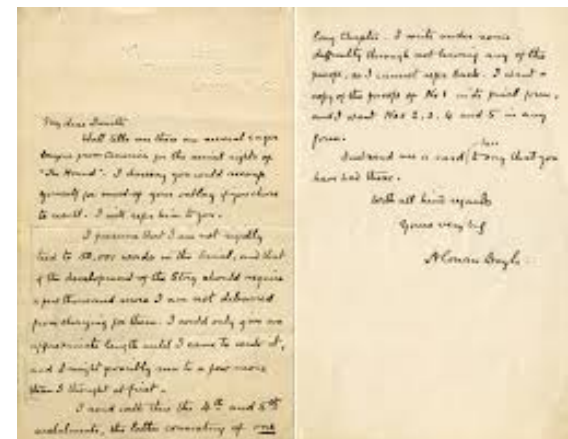 My dear Smith
Watt tells me there are several eager
buyers from America for the serial rights of
"The Hound". I daresay you would recoup
yourself for much of your outlay if you chose
to resell. I will refer him to you.
I presume that I am not rigidly
tied to 50,000 words in the Serial, and that
if the development of the Story should require
a few thousand more I am not debarred
from charging for them. I could only give an
approximate length until I came to write it,
and I might possibly run to a few more
than I thought at first.
I send with this the 4th and 5th
instalments, the latter consisting of one
long Chapter. I write under some
difficulty through not having any of the
proofs, so I cannot refer back. I want a
copy of the proofs of No 1 in its final form,
and I want Nos 2, 3, 4 and 5 in any
form.
Just send me a card to say that you
have had these.
With all kind regards
Yours very truly
A Conan Doyle